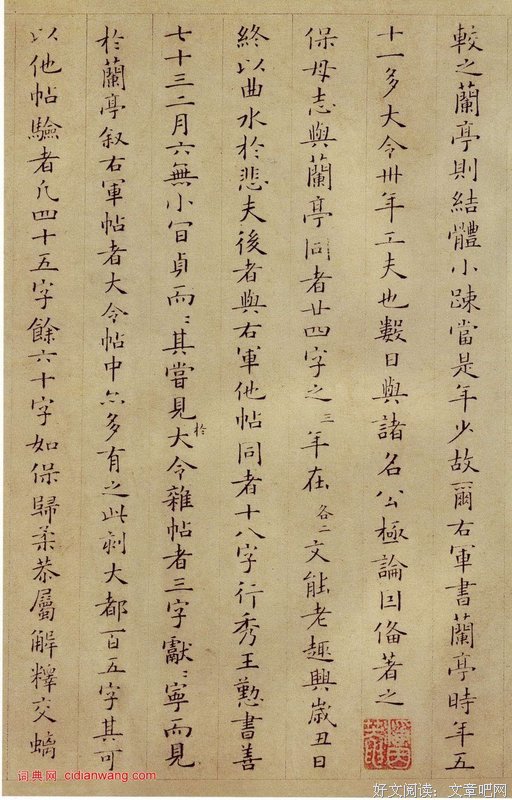 較之蘭亭則結體小踈當是年少故爾右軍書蘭亭時年五
十一多大令卅年工夫也數日與諸名公極論因备著之
保母志與蘭亭同者廿四字之三年在各二文能老趣興歲丑日
終以曲水於悲夫後者與右軍他帖同者十八字行秀王懃書善
七十三二月六無小囗貞而〻其嘗見於大令雜帖者三字獻〻寧而見
於蘭亭叙右軍帖者大令帖中亦多有之此刻大都百五字其可
以他帖驗者凡四十五字餘六十字如保歸柔恭屬解釋交螭
词典网 cidianwang.com
好文阅读：文章吧网